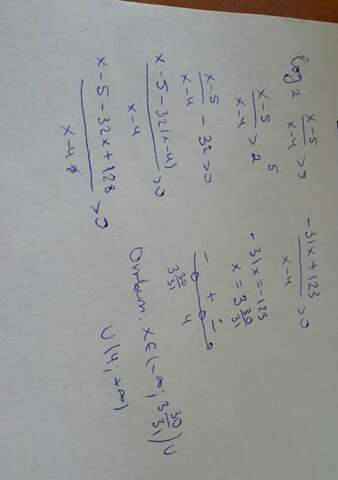 log₂ (x-5)/(x-4) > 5
(x-5)/(x-4) > 2⁵
(x-5)/(x-4) - 32 > 0
(x-5-32(x-4))/(x-4) > 0
(x-5-32x+128)/(x-4) > 0
(-31x+123)/(x-4) > 0
-31x = -123
x = 3 30/31
- + -
3 30/31 4
Ответ: x ∈ (-∞; 3 30/31) ∪
∪ (4; +∞)